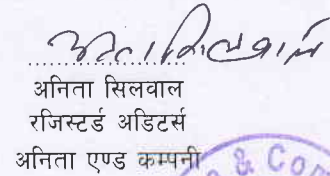 अनिता सिलवाल
अनिता सिलवाल
रजिस्टर्ड अडिटर्स
अनिता एण्ड कम्पनी
& Co